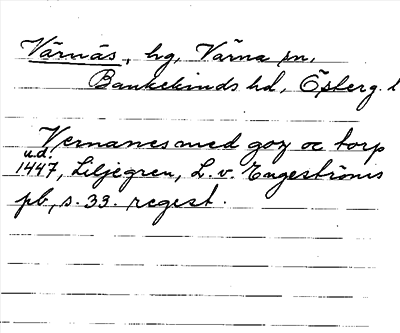 Värnäs, hg, Värna sn,
Bankekinds hd, Österg. l
Vernanes med goz oc torp
u.d.
1447, Liljegren, L. v. Engeströms
pb, s. 33. regest.